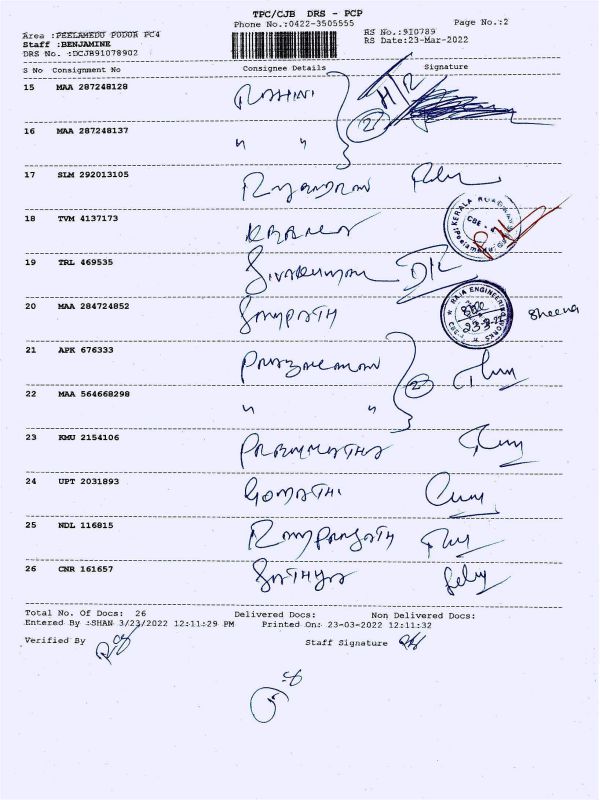 TPC/CJB DRS - PCP
Phone No.:0422-3505555
Page No.:2
Area :PEELAMEDU PUDUR PC4
RS No.:9I0789
Staff :BENJAMINE
RS Date:23-Mar-2022
DRS No. :DCJB91078902
S No Consignment No Consignee Details Signature
15 MAA 287248128 ROHINI
16 MAA 287248137 " "
(2)
17 SLM 292013105
18 TVM 4137173
KERALA ROADWAYS
CBE
19 TRL 469535 SIVAKUMAR
20 MAA 284724852 SAMPATH
RAJA ENGINEERING WORKS
23-3-22
Sheena
21 APK 676333
22 MAA 564668298 " "
(2)
23 KMU 2154106
24 UPT 2031893 GOMATHI
25 NDL 116815
26 CNR 161657 SATHYA
Total No. Of Docs: 26 Delivered Docs: Non Delivered Docs:
Entered By :SHAN 3/23/2022 12:11:29 PM Printed On: 23-03-2022 12:11:32
Verified By Staff Signature